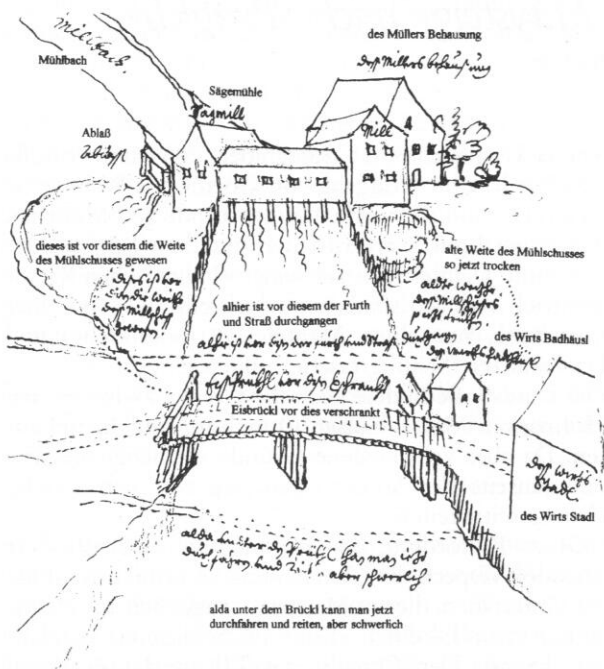 Millbach.
Mühlbach
des Müllers Behausung
dess Millers behausung
Sägemühle
Sagmill
Mill
Ablaß
Ablass
dieses ist vor diesem die Weite
des Mühlschusses gewesen
dises ist vor
disem die Weitte
dess Millschuss
gewesen
alte Weite des Mühlschusses
so jetzt trocken
aldte Weitte
dess Millschusses
alhier ist vor diesem der Furth
und Straß durchgangen
alhier ist vor disem der furth und Strass durchgangen
des Wirts Badhäusl
dess Wirths badheüsl
Eisbrückl vor dies verschrankt
dess Wirths
Stadl
des Wirts Stadl
alda unter dem Brückl kann man jetzt
durchfahren und reiten, aber schwerlich